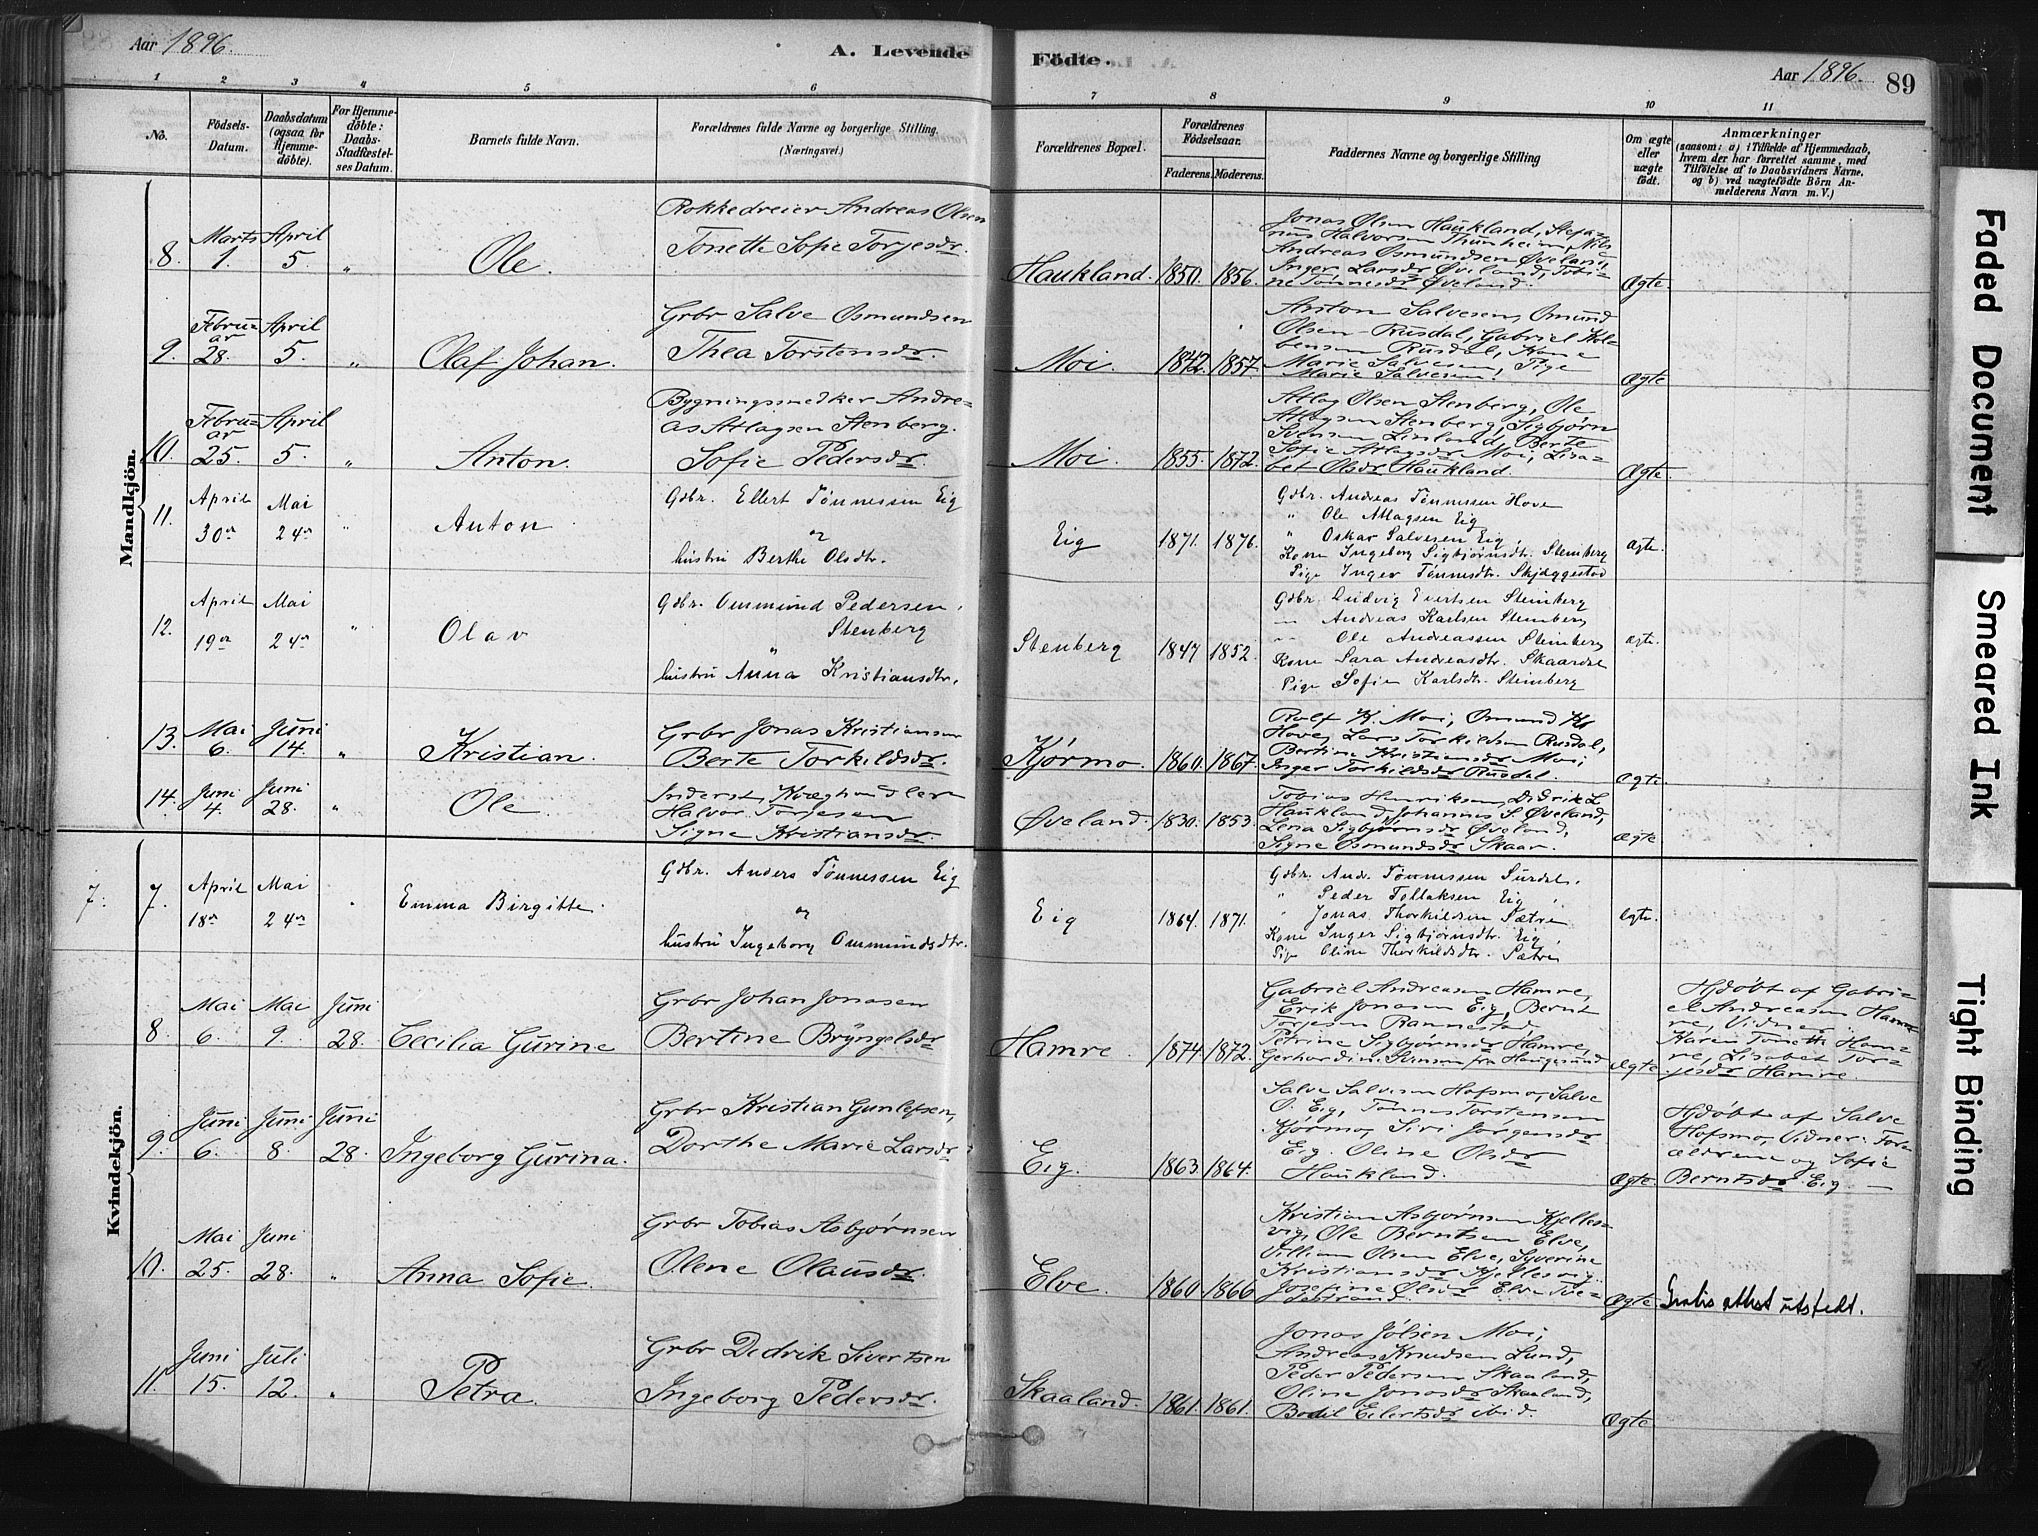 Aar 1896. A. Levende Födte. Aar 1896. 89
1 2 3 4 5 6 7 8 9 10 11
No.
Födsels-Datum.
Daabsdatum (ogsaa for Hjemmedöbte).
For Hjemmedöbte: Daabs-Stadfæstelses Datum.
Barnets fulde Navn.
Forældrenes fulde Navne og borgerlige Stilling. (Næringsvei.)
Forældrenes Bopæl.
Forældrenes Födselsaar.
Faderens. Moderens.
Faddernes Navne og borgerlige Stilling
Om ægte eller uægte födt.
Anmærkninger
(saasom: a) i Tilfælde af Hjemmedaab, hvem der har forrettet samme, med Tilföielse af to Daabsvidners Navne, og b) ved uægtefödte Börn Anmelderens Navn m. V.)
Mandkjön.
8. Marts 1. April 5. " Ole.
Rokkedreier Andreas Olsen
Tonette Sofie Torjesdr.
Haukland. 1850. 1856.
Jonas Olsen Haukland, Stefa-
nus Halvorsen Thunheim, Nils
Andreas Osmundsen Øveland,
Inger Larsdr Øveland, Tobi-
ne Tønnesdr Øveland.
Ægte.
9. Februar 28. April 5. " Olaf Johan.
Grbr Salve Osmundsen
Thea Torstensdr.
Moi. 1842. 1857.
Anton Salvesen, Osmund
Olsen Rusdal, Gabriel Kol-
bensen Rusdal, Kone
Marie Salvesen, Pige
Marie Salvesen.
Ægte
10. Februar 25. April 5. " Anton.
Bygningssnedker Andre-
as Atlagsen Stenberg.
Sofie Pedersdr.
Moi. 1855. 1872.
Atlag Olsen Stenberg, Ole
Atlagsen Stenberg, Sigbjørn
Svensen Linland, Berte
Sofie Atlagsdr Moi, Lisa-
bet Olsdr Haukland.
Ægte.
11. April 30te Mai 24de " Anton
Gdbr. Ellert Tønnessen Eig
og
hustru Berthe Olsdtr.
Eig 1871. 1876.
Gdbr. Andreas Tønnessen Hove
" Ole Atlagsen Eig
" Oskar Salvesen Eig,
Kone Ingeborg Sigbjørnsdtr. Stenberg
Pige Inger Tønnesdtr. Skjæggestad
Ægte.
12. April 19de Mai 24de " Olav
Gdbr. Ommund Pedersen
Stenberg
"
hustru Anna Kristiansdtr.
Stenberg 1847 1852.
Gdbr. Ludvig Evertsen Steinberg
— Andreas Karlsen Steinberg
— Ole Andreassen Steinberg
Kone Sara Andreasdtr. Skaardal
Pige Sofie Karlsdtr. Steinberg
Ægte.
13. Mai 6. Juni 14. " Kristian.
Grbr Jonas Kristiansen
Berte Torkildsdr.
Kjørmo. 1860. 1867.
Rolf K. Moi, Osmund K.
Hove, Lars Torkildsen Rusdal,
Bertine Kristiansdr Moi,
Inger Torkildsdr Rusdal.
Ægte.
14. Juni 4. Juni 28. " Ole.
Inderst, Kvæghandler
Halvor Torjesen
Signe Kristiansdr.
Øveland. 1830. 1853.
Tobias Henriksen, Didrik L
Haukland, Johannes S. Øveland,
Lena Sigbjørnsdr Øveland,
Signe Osmundsdr Skaar.
Ægte
Kvindekjön.
7. 7. April 18de Mai 24de " Emma Birgitte.
Gdbr. Anders Tønnessen Eig
og
hustru Ingeborg Ommundsdtr.
Eig 1864. 1871.
Gdbr. And. Tønnessen Surdal.
" Peder Tollaksen Eig,
" Jonas Thorkildsen Sætre
Kone Inger Sigbjørnsdtr. Eig,
Pige Oline Thorkildsdtr. Sætre
Ægte.
8. Mai 6. Mai 9. Juni 28. Cecilia Gurine
Grbr Johan Jonasen
Bertine Bryngelsdr
Hamre. 1874 1872.
Gabriel Andreasen Hamre,
Erik Jonasen Eig, Bernt
Torjesen Rannestad
Petrine Sigbjørnsdr Hamre,
Gerhardine Svensen fra Haugesund
Ægte.
Hjdøbt af Gabri-
el Andreasen Ham-
re, Vidner:
Karen Tonette Ham-
re, Lisabet Tor-
jesdr Hamre.
9. Juni 6. Juni 8. Juni 28. Ingeborg Gurina.
Grbr Kristian Gunlefsen,
Dorthe Marie Larsdr
Eig. 1863. 1864.
Salve Salvesen Hofsmo, Salve
O. Eig, Tønnes Torstensen
Kjørmo, Siri Jørgensdr
Eig. Oline Olsdr
Haukland.
Ægte.
Hjdøbt af Salve
Hofsmo, Vidner: For-
ældrene og Sofie
Berntsdr Eig. —
10. Mai 25. Juni 28. " Anna Sofie.
Grbr Tobias Asbjørnsen
Olene Olausdr.
Elve. 1860 1866
Kristian Asbjørnsen Kjelles-
vig, Ole Berntsen Elve,
Villiam Olsen Elve, Syverine
Kristiansdr Kjellesvig.
Josefine Olsdr Elve Tve-
destrand.
Ægte.
Gratis attest utstedt.
11. Juni 15. Juli 12. " Petra.
Grbr Dedrik Sivertsen
Ingeborg Pedersdr.
Skaaland. 1861. 1861.
Jonas Jølsen Moi,
Andreas Knudsen Lund,
Peder Pedersen Skaaland,
Oline Jonasdr Skaaland,
Bodil Eilertsdr ibid.
Ægte.
Faded Document
Smeared Ink
Tight Binding